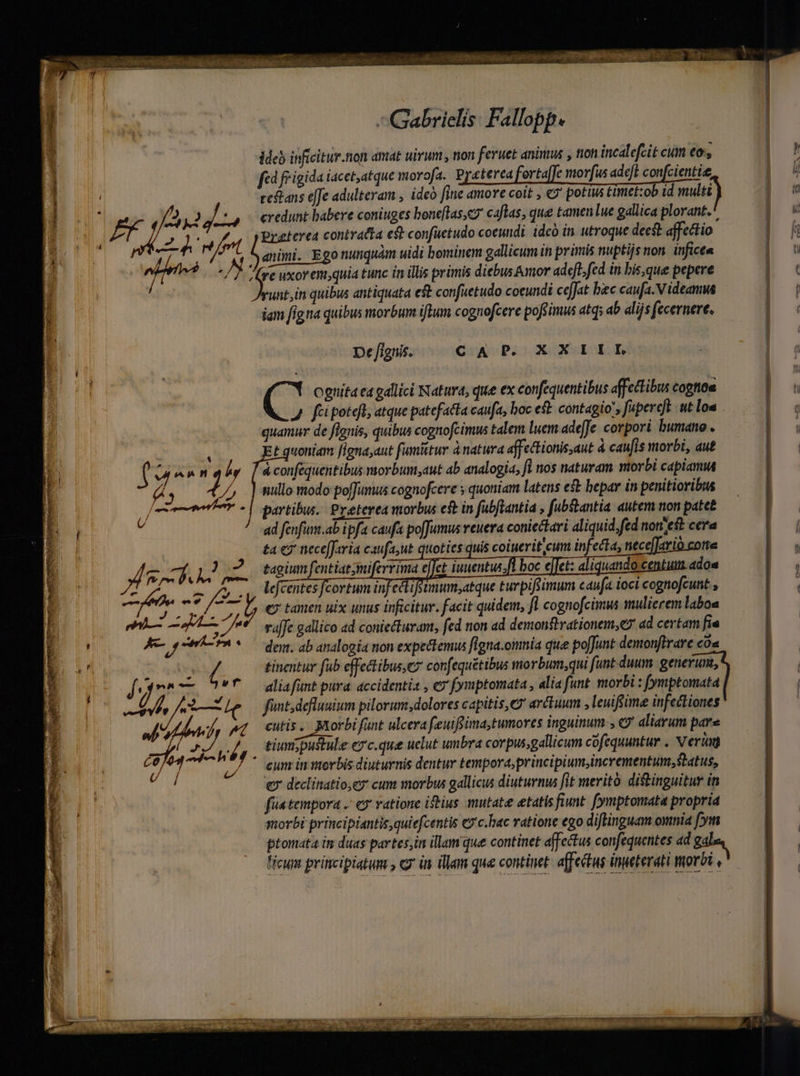 Gabrielis Fallopp.
ideò inficitur.non amat uirum, non feruet animus, non incalescit cum eo,
sed frigida iacet,atque morosa. Præterea fortasse morsus adest conscientiæ,
restans esse adulteram, ideò sine amore coit, & potius timet:ob id multi
credunt habere coniuges honestas,& castas, quæ tamen lue gallica plorant.
Præterea contracta est consuetudo coeundi. ideò in utroque deest affectio
animi. Ego nunquàm uidi hominem gallicum in primis nuptijs non inficere
uxorem,quia tunc in illis primis diebus Amor adest,sed in his,quæ pepere
runt,in quibus antiquata est consuetudo coeundi cessat hæc causa. Videamus
iam signa quibus morbum istum cognoscere possimus atq; ab alijs secernere.
De signis. CAP. XXIII.
Cognita ea gallici Natura, quæ ex consequentibus affectibus cognos
sci potest, atque patefacta causa, hoc est contagio, superest ut loa
quamur de signis, quibus cognoscimus talem luem adesse corpori humano.
Et quoniam signa,aut sumūtur à natura affectionis,aut à causis morbi, aut
à consequentibus morbum,aut ab analogia, si nos naturam morbi capiamus
nullo modo possumus cognoscere; quoniam latens est hepar in penitioribus
partibus. Præterea morbus est in substantia, substantia autem non patet
ad sensum.ab ipsa causa possumus reuera coniectari aliquid,sed non est cera
ta & necessaria causa,ut quoties quis coiuerit cum infecta, necessariò cona
tagium sentiat,miserrima esset iuuentus,si hoc esset: aliquando centum adoa
lescentes scortum infectissimum,atque turpissimum causa ioci cognoscunt,
& tamen uix unus inficitur. facit quidem, si cognoscimus mulierem laboa
rasse gallico ad coniecturam, sed non ad demonstrationem,& ad certam fia
dem. ab analogia non expectemus signa.omnia quæ possunt demonstrare coa
tinentur sub effectibus,& consequētibus morbum,qui sunt duum generum,
alia sunt pura accidentia, & symptomata, alia sunt morbi: symptomata
sunt,defluuium pilorum,dolores capitis,& arctuum, leuissimæ infectiones
cutis. Morbi sunt ulcera sæuissima,tumores inguinum, & aliarum para
tium,pustulæ &c.quæ uelut umbra corpus,gallicum cōsequuntur. Verùm
cum in morbis diuturnis dentur tempora,principium,incrementum,status,
& declinatio,& cum morbus gallicus diuturnus sit meritò distinguitur in
sua tempora. & ratione istius mutatæ ætatis fiunt symptomata propria
morbi principiantis,quiescentis &c.hac ratione ego distinguam omnia sym
ptomata in duas partes,in illam quæ continet affectus consequentes ad gala
licum principiatum, & in illam quæ continet affectus inueterati morbi,